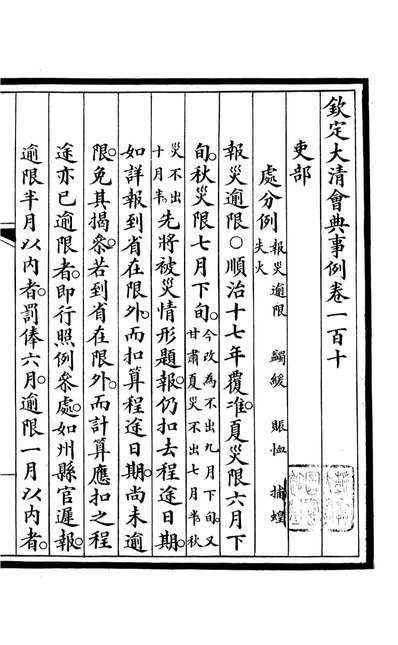 欽定大清會典事例卷一百十
吏部
處分例 報災逾限 蠲緩 賑恤 捕蝗 失火
報災逾限○順治十七年覆准。夏災限六月下
旬。秋災限七月下旬。今改為不出九月下旬。又甘肅夏災不出七月半。秋
災不出十月半。先將被災情形題報。仍扣去程途日期。
如詳報到省在限外。而扣算程途日期。尚未逾
限。免其揭參。若到省在限外。而計算應扣之程
途亦已逾限者。即行照例參處。如州縣官遲報。
逾限半月以內者。罰俸六月。逾限一月以內者。